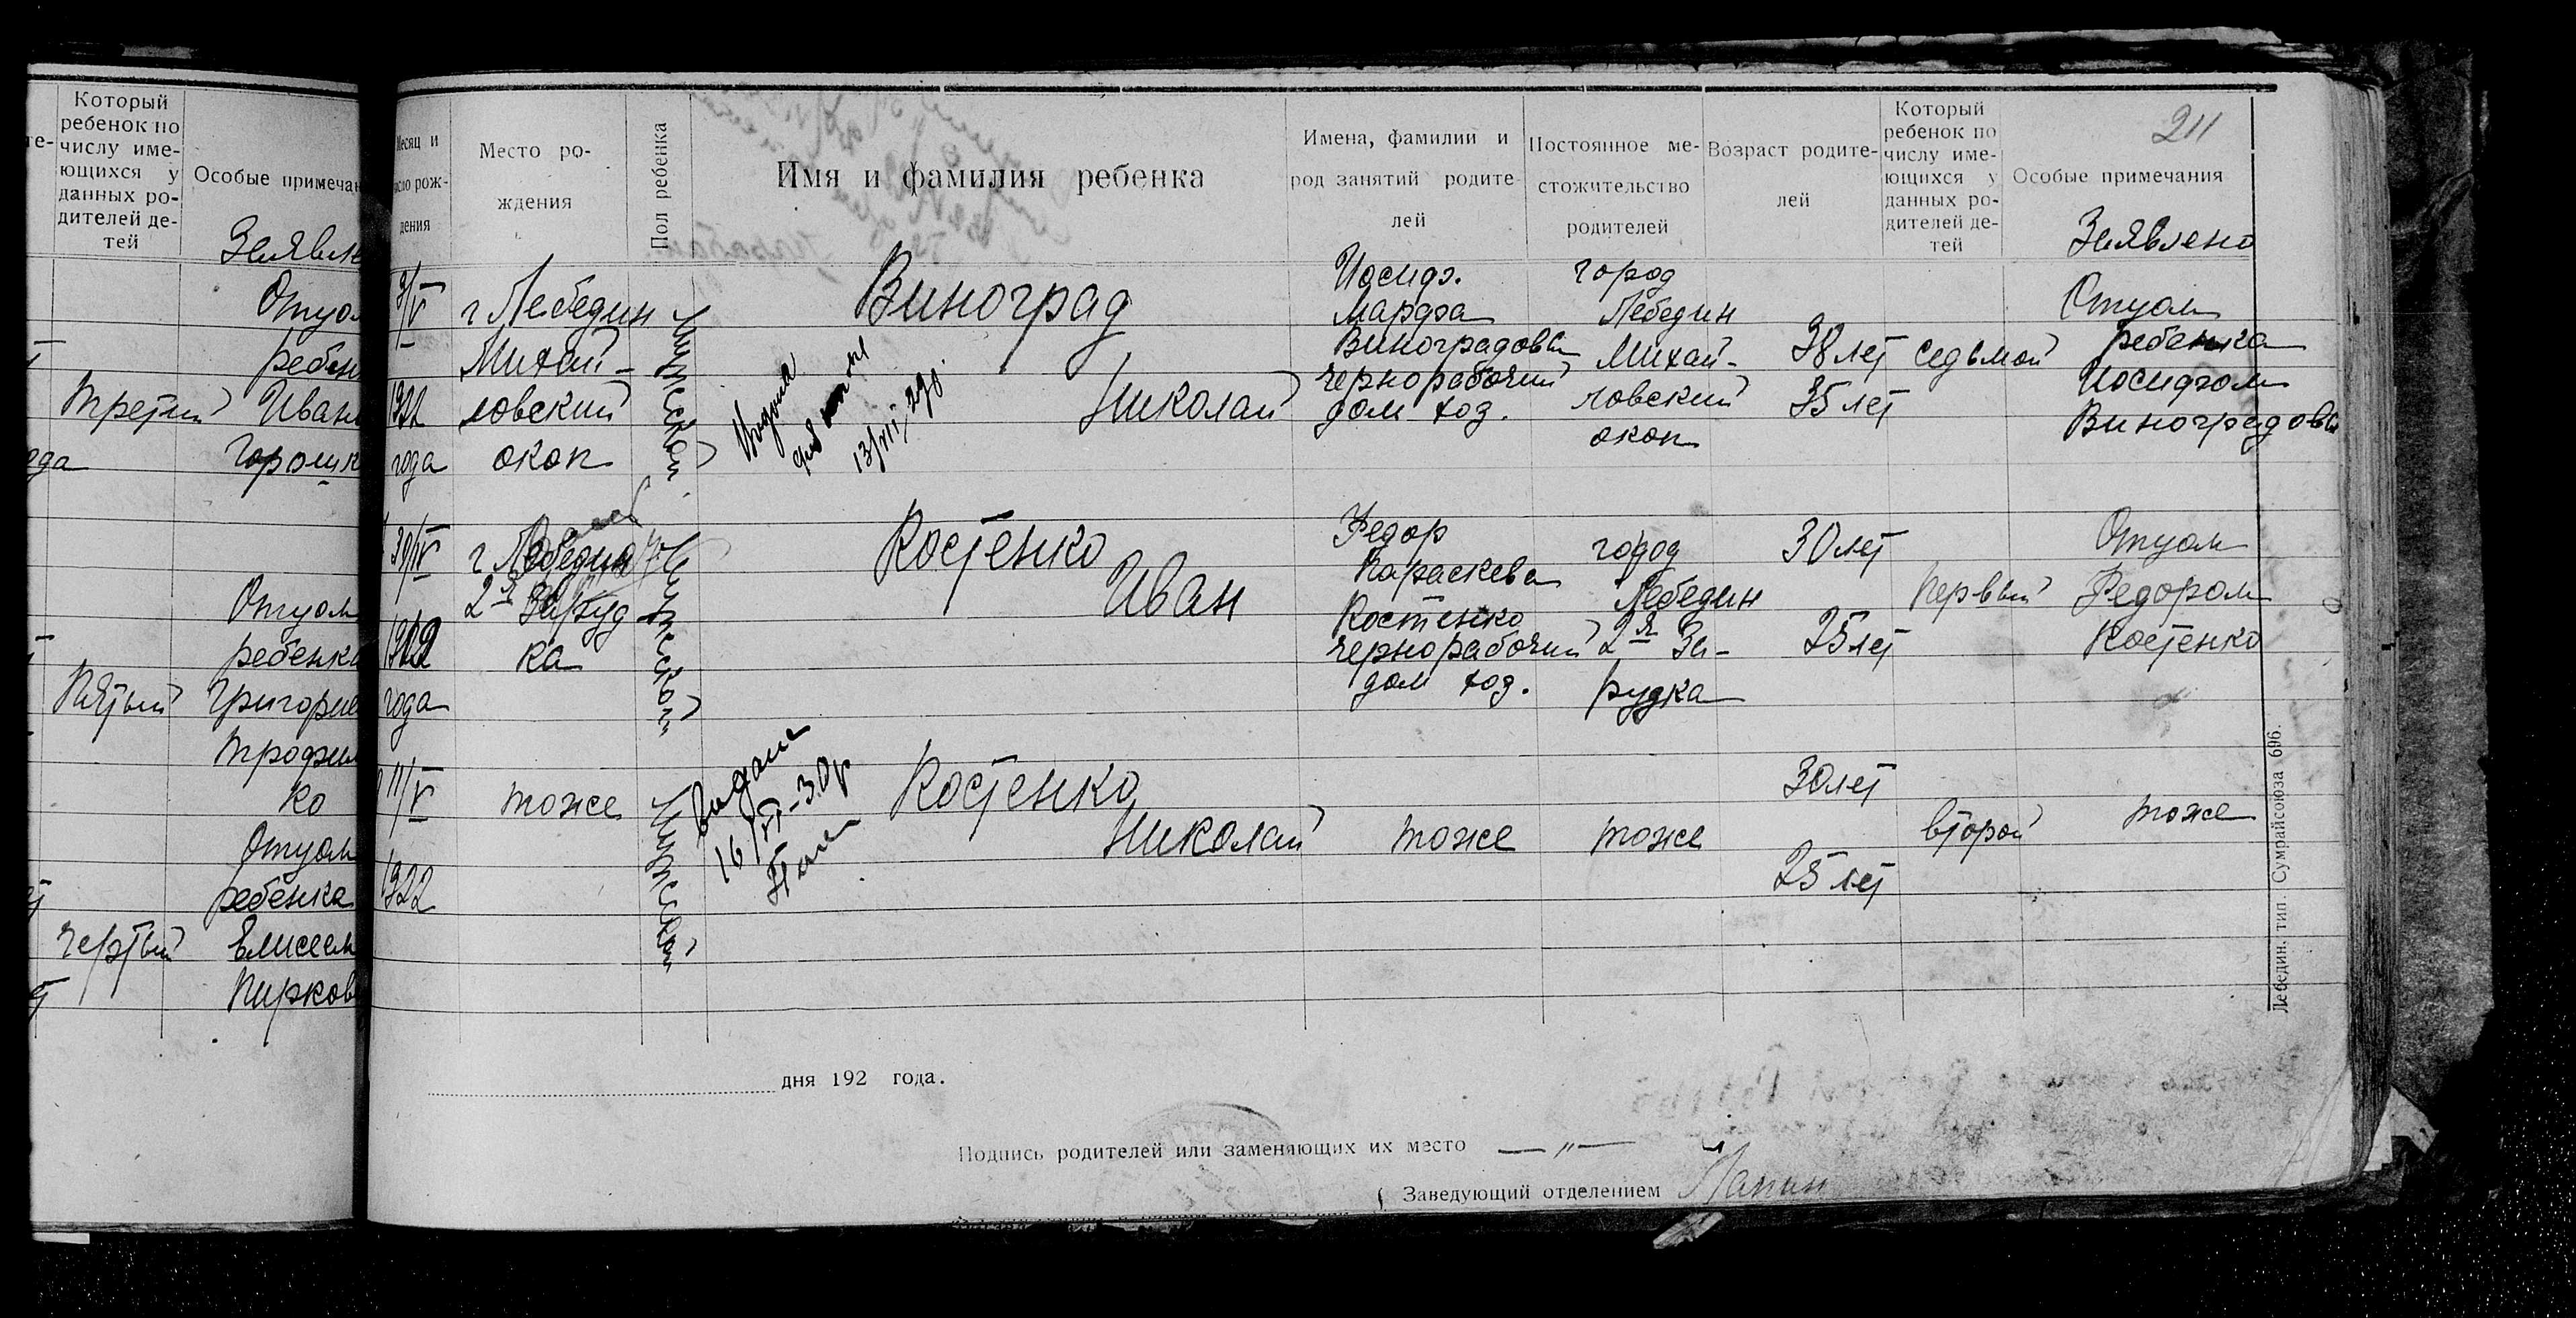 Который
ребенок по
числу име-
ющихся у
данных ро-
дителей де-
тей
Особые примечан
Заявлен
Отцом
ребен
третий Иван
Отцом
ребенка
Пятый Григорие
Трофим
ко
Отцом
ребенка
Елисеем
Пирков
211
Месяц и
число рож-
дения
Место ро-
ждения
Пол ребенка
Имя и фамилия ребенка
Имена, фамилии и
род занятий родите-
лей
Постоянное ме-
стожительство
родителей
Возраст родите-
лей
Который
ребенок по
числу име-
ющихся у
данных ро-
дителей де-
тей
Особые примечания
Заявлено
1921
года
г Лебедин
Михай-
ловский
окоп
Мужеской
Виноград
Николай
13/VII 29г.
Иосиф.
Марфа
Виноградовы
чернорабочий
дом хоз.
город
Лебедин
Михай-
ловский
окоп
38 лет
35 лет
седьмой
Отцом
ребенка
Иосифом
Виноградовы
30/IV
1922
года
г Лебедин
2я Заруд
ка
Мужеской
Костенко
Иван
Федор
Параскева
Костенко
чернорабочий
дом хоз.
город
Лебедин
2я За-
рудка
30 лет
25 лет
первый
Отцом
Федором
Костенко
11/V
1922
тоже
Мужеской
Выдана
16/VI-30г
Костенко
Николай
тоже
тоже
30 лет
25 лет
второй
тоже
Лебедин. тип. Сумрайсоюза 696.
дня 192 года.
Подпись родителей или заменяющих их место — „ —
Заведующий отделением